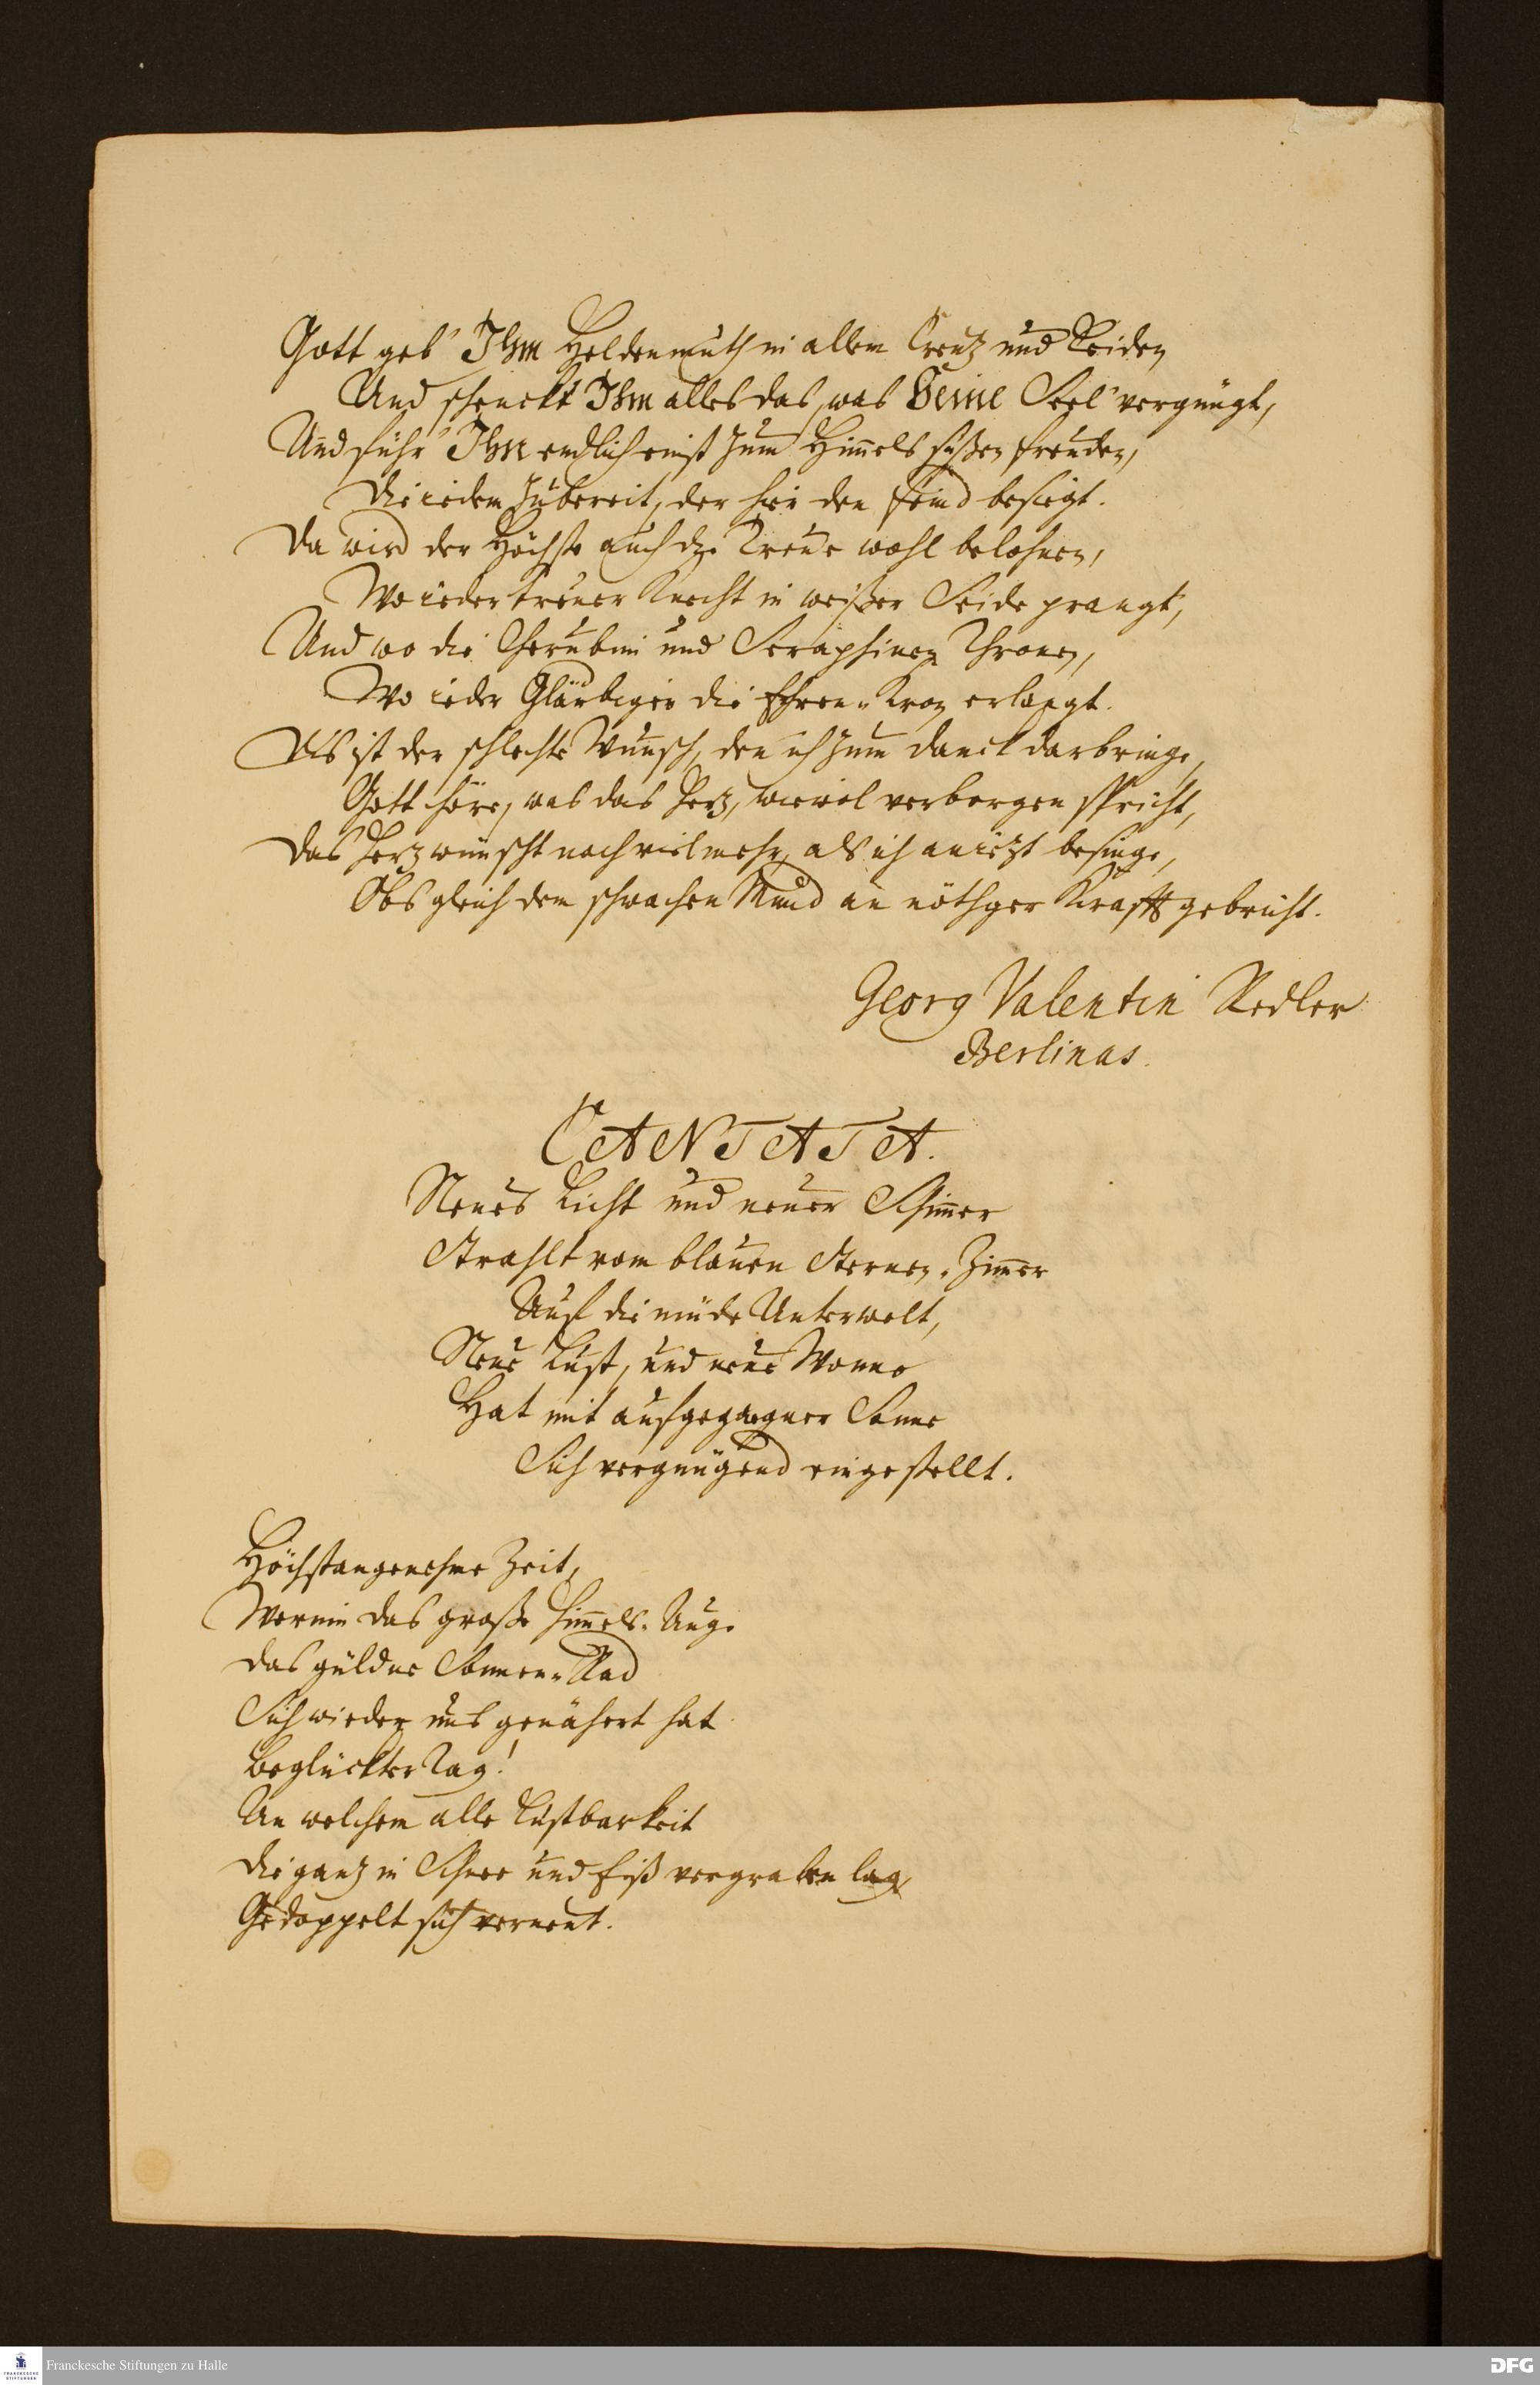 Gott geb' Ihm Heldenmuth in allem Creutz und Leiden
Und schenckt Ihm alles das, was Seine Seel' vergnügt,
Und führ' Ihn endlich einst zum Himmels süßen Freuden,
Die iedem zubereit, der hier den Feind besiegt.
Da wird der Höchste auch die Treue wohl belohnen,
Wo ieder treuer Knecht in weißer Seide prangt,
Und wo die Cherubim und Seraphinen Thronen,
Wo ieder Gläubiger die Ehren-Kron erlangt.
Diß ist der schlechte Wunsch, den ich zum Danck darbringe,
Gott höre, was das Herz, wiewol verborgen spricht,
Das Herz wünscht noch vielmehr, als ich anietzt besinge,
Obs gleich dem schwachen Mund an nöthger Krafft gebricht.
Georg Valentin Redler
Berlinas.
CANTATA.
Neues Licht und neuer Schimmer
Strahlt vom blauen Sternen-Zimmer
Auf die müde Unterwelt,
Neue Lust, und neue Wonne
Hat mit aufgegangner Sonne
Sich vergnügend eingestellt.
Höchstangenehme Zeit,
Worinn das große Himels-Aug.
Das güldne Sonnen-Rad
Sich wieder uns genähert hat
Beglückter Tag!
An welchem alle Lustbarkeit
Die ganz in Schnee und Eiß vergraben lag,
Gedoppelt sich verneut.
Franckesche Stiftungen zu Halle
FRANCKESCHE STIFTUNGEN
DFG